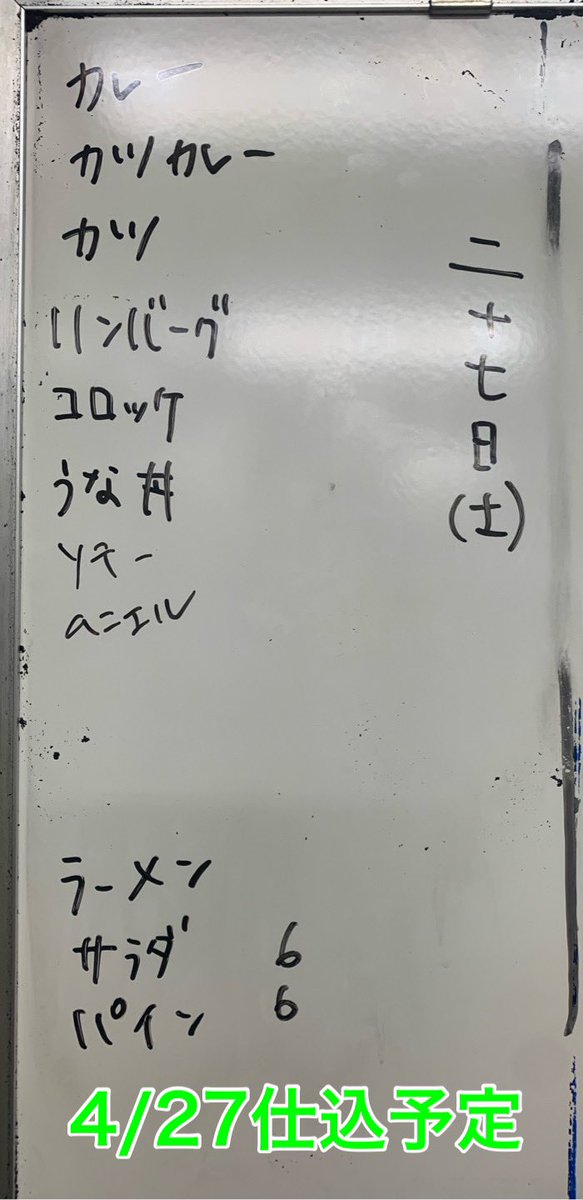 二十七日(土)
カレー
カツカレー
カツ
ハンバーグ
コロッケ
うな丼
ソテー
aニエル
ラーメン
サラダ 6
パイン 6
4/27仕込予定